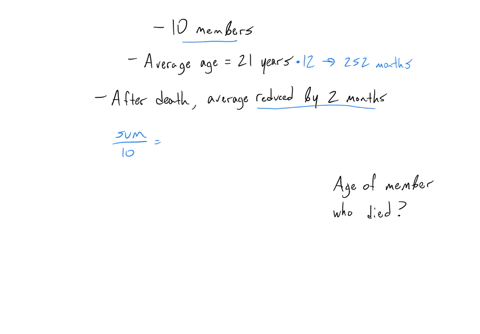 - 10 members
- Average age = 21 years · 12 → 252 months
- After death, average reduced by 2 months
sum/10 =
Age of member
who died?